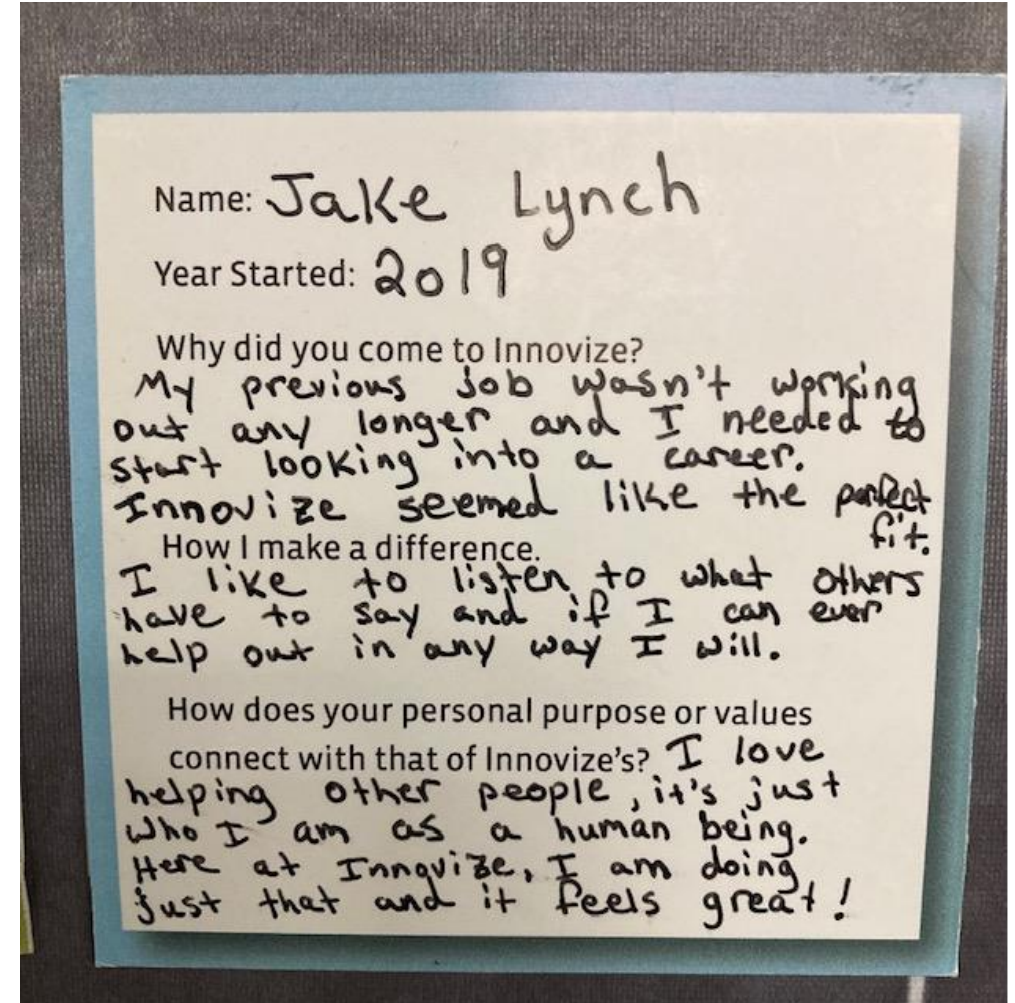 Name: Jake Lynch
Year Started: 2019
Why did you come to Innovize?
My previous job wasn't working
out any longer and I needed to
start looking into a career.
Innovize seemed like the perfect
fit.
How I make a difference.
I like to listen to what others
have to say and if I can ever
help out in any way I will.
How does your personal purpose or values
connect with that of Innovize's? I love
helping other people, it's just
who I am as a human being.
Here at Innovize, I am doing
just that and it feels great!